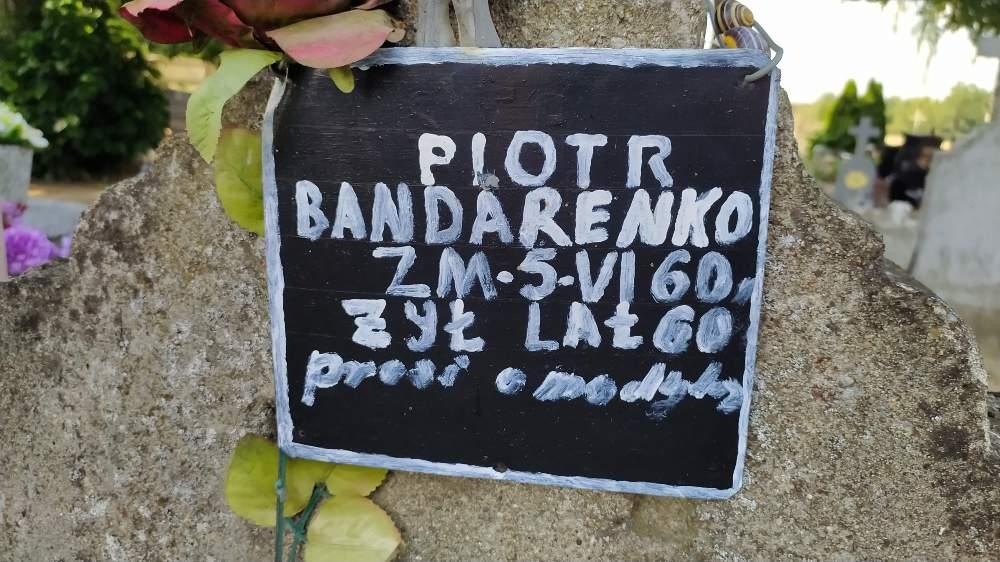 PIOTR
BANDARENKO
ZM. 5-VI 60.
ŻYŁ LAT 60
prosi o modły